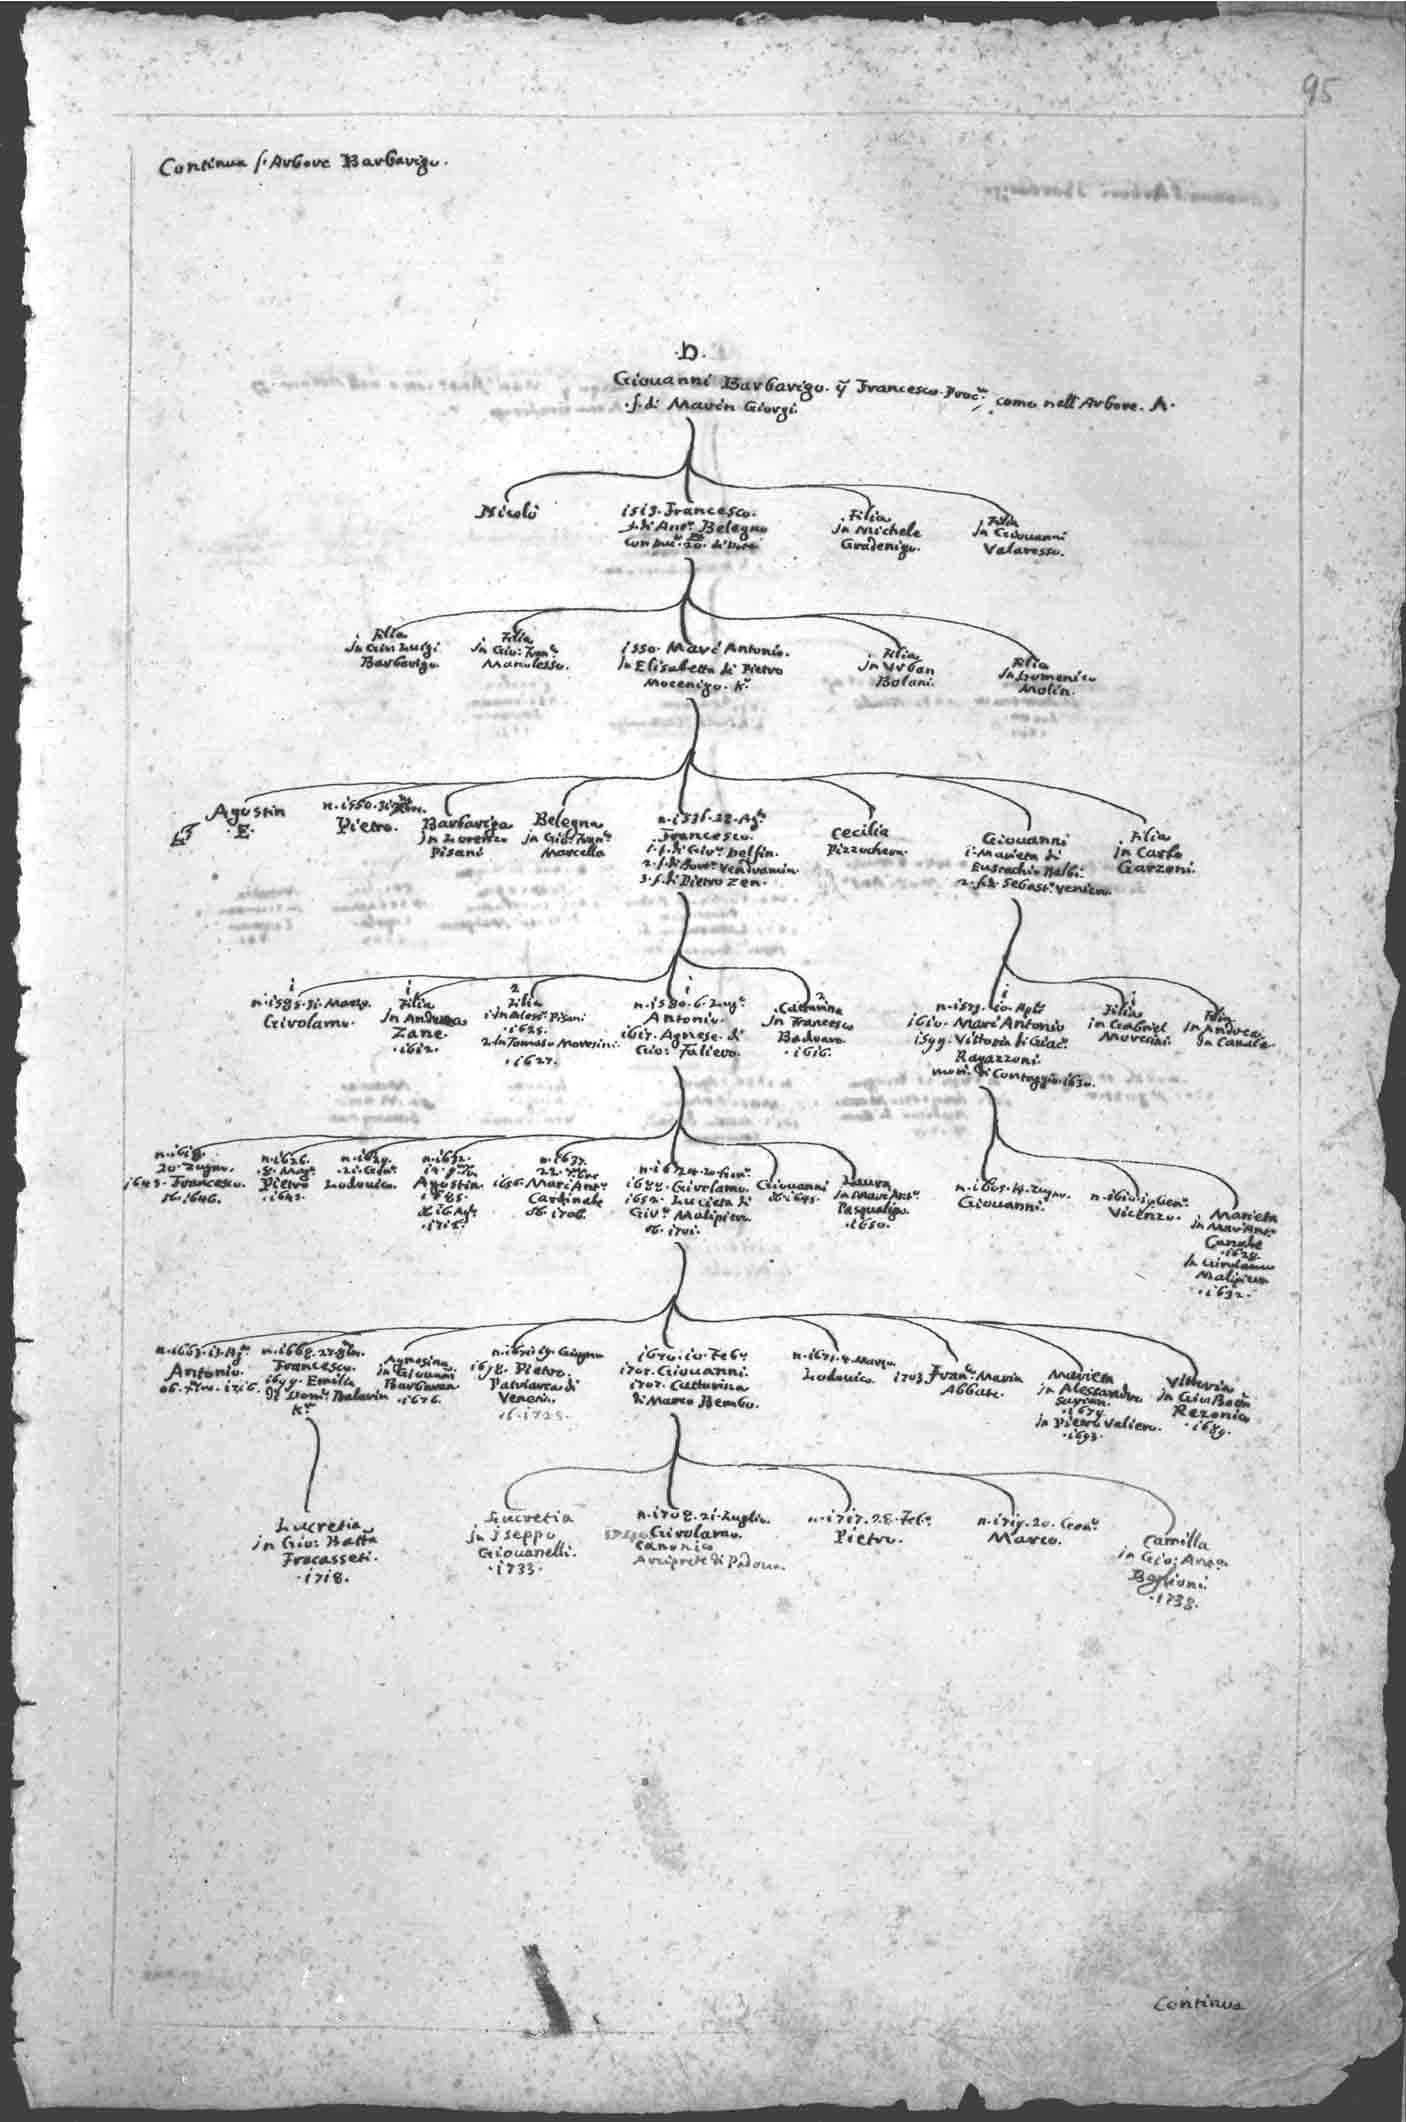 95
Continua l'Arbore Barbarigo.
.b.
Giouanni Barbarigo. q Francesco. Proc.r come nell'Arbore. A.
.f. di Marin Giorgi.
Nicolò
1513. Francesco.
f. di Ant.o Belegno
con duc.
Filia
In Michele
Gradenigo.
Filia
In Giouanni
Valaresso.
Filia
In Gio: Luigi
Barbarigo
Filia
In Gio: Fran.co
Manolesso.
1550. Marc'Antonio.
In Elisabetta di Pietro
Mocenigo. K.r
Filia
In Vrban
Bolani.
Filia
In Domenico
Molin.
Agostin
.E.
Pietro.
Barbariga
In Lorenzo
Pisani
Belegna
In Gio: Fran.co
Marcello
Francesco.
1. f. di Gio: Delfin.
2. f. di Vendramin.
3. f. di Pietro Zen.
Cecilia
Pizzochera.
Giouanni
1. Marieta di
Eustachio Balbi.
2. Sebast.n Venier.
Filia
In Carlo
Garzoni.
1
n. 1585. 31. Marzo.
Girolamo.
1
Filia
In Andrea
Zane.
.1612.
2
Filia
1. In Aless.o Pisani
.1625.
2. In Tomaso Moresini.
.1627.
1
n. 1580. 6. Lug.o
Antonio.
1617. Agnese. di
Gio: Falier.
2
Cattarina
In Francesco
Badoaro.
.1616.
1
1610. Marc'Antonio
1599. Vittoria di Giac.o
Ragazzoni.
mori. di Contaggio. 1630.
1
Filia
in Gabriel
Moresini.
Filia
In Andrea
da Canale.
n. 1618.
20. Zugno.
1643. Francesco.
16. 1646.
n. 1626.
.8. Mag.o
Pietro
.1645.
n. 1629.
.21. Gen.o
Lodouico.
n. 1632.
Agostin.
n. 1637.
22.
1656. Marc'Ant.o
Cardinale
ob. 1706.
Girolamo.
1652. Lucieta di
Gio: Malipiero.
ob. 1701.
Giouanni
ob. 1695.
Laura
In Marc'Ant.o
Pasqualigo.
.1650.
n. 1605. Zugno.
Giouanni.
n. 1610. Gen.o
Vicenzo.
Marieta
in Marc'Ant.o
Canale
.1628.
In Girolamo
Malipiero
.1632.
Antonio.
Francesco.
1699. Emilia
K.r
Agnesina
in Giouanni
Barbarigo
.1676.
n. 1671. 19. Giugno
1698. Pietro.
Patriarca di
Venetia.
ob. 1725.
1670. 10. Feb.o
1705. Giouanni.
1707. Cattarina
di Marco Bembo.
n. 1671. 4. Marzo
Lodouico.
1703. Fran.co Maria
Abbate.
Marieta
in Alessandro
Surian.
.1679.
in Pietro Valiero.
.1693.
Vittoria
In Gio: Batta
Rezonico
.1689.
Lucretia
in Gio: Batta
Fracasseti.
.1718.
Lucretia
In Iseppo
Giouanelli.
.1733.
n. 1708. 21. Luglio.
Girolamo.
Canonico
Arciprete di Padoua.
n. 1717. 28. Feb.o
Pietro.
n. 1719. 20. Gen.o
Marco.
Camilla
in Gio: And.a
Baglioni
.1738.
Continua